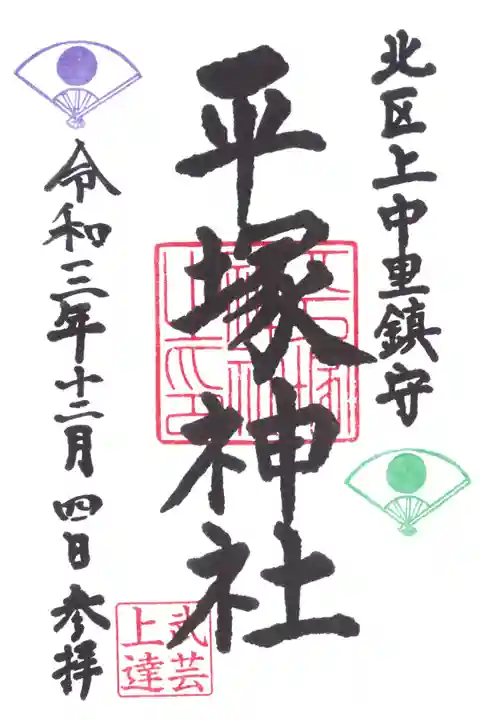 北区上中里鎮守
平塚神社
武芸
上達
令和三年十二月四日参拝